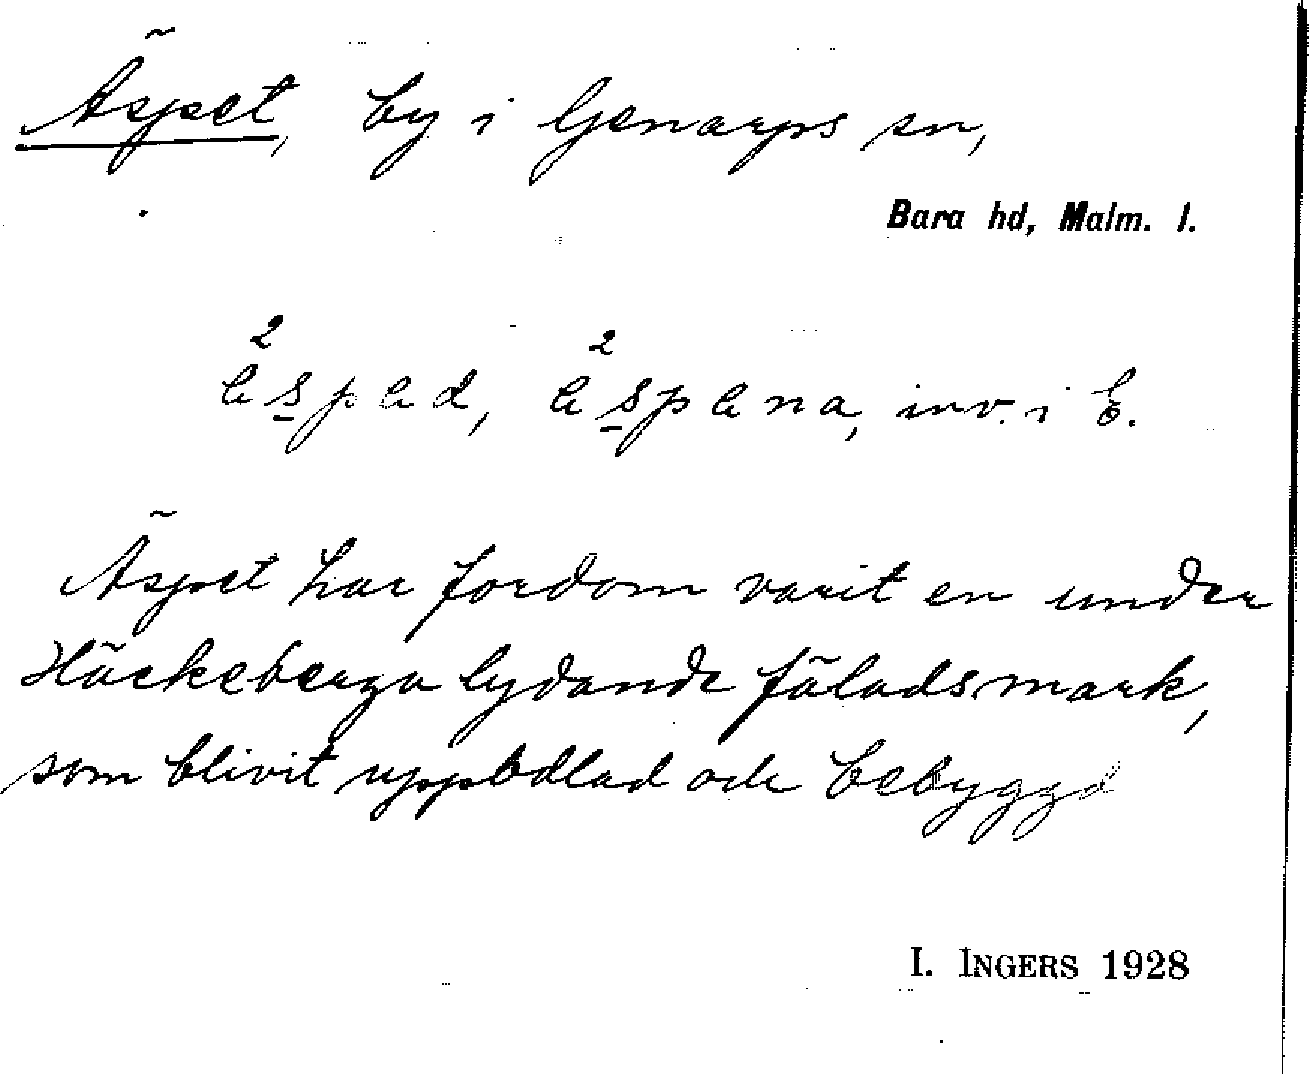 Äspet, by i Genarps sn,
Bara hd, Malm. l.
²äspäd, ²äspäna, inv. i Ä.
Äspet har fordom varit en under
Häckeberga lydande fäladsmark,
som blivit uppodlad och bebyggd
I. INGERS 1928